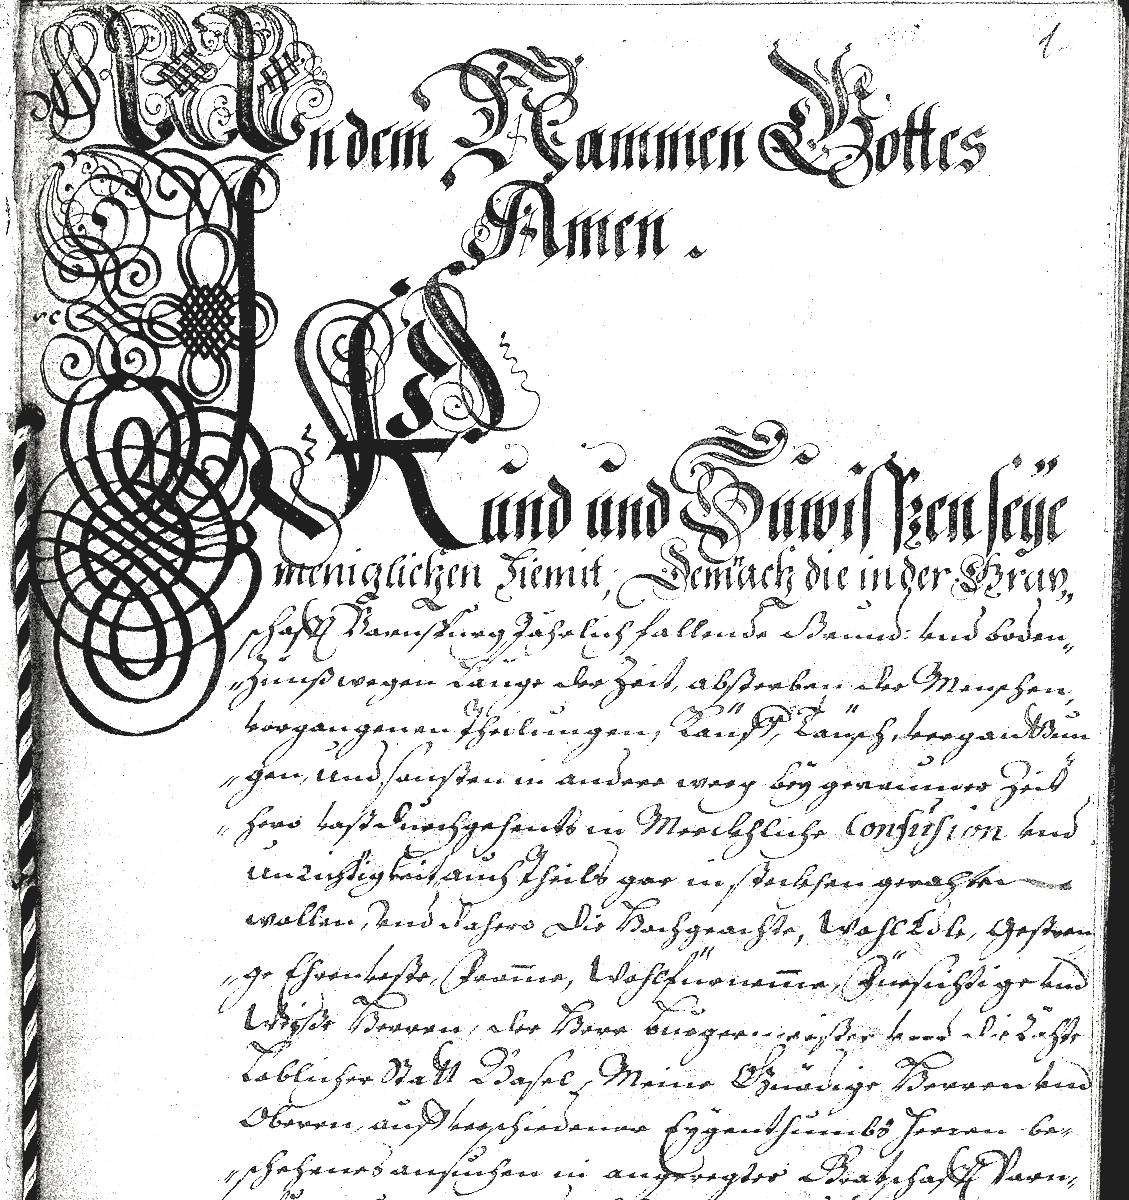 1
In dem Nammen Gottes
Amen.
Kund und Zuwisszen seÿe
menigclichen hiemit, Demnach die in der Grav„
schafft Varnspurg Jährlich fallende Grund: und boden„
„Zünß wegen Länge der Zeit, absterben der Menschen,
vorgangenen Theilungen, Käuff, Täusch, vergandtun
„gen, und sonsten in andere weeg beÿ geraumer Zeit
„hero fast durchgehents in Merckhliche Confusion und
Unrichtigkeit, auch Theils gar in steckhen gerahten
wollen, Und dahero die Hochgeachte, Wohl Edle, Gestren
„ge Ehrenveste, Fromme, Wohlfürnemme, Fürsichtige und
Weyße Herren, der Herr burgermeister und die Räthe
Loblicher Statt Basel, Meine Gnädige Herren und
Oberen, auff verschiedener Eÿgenthumbs Herren be„
„schehenes ansuchen in angeregter Gravschafft Varn„